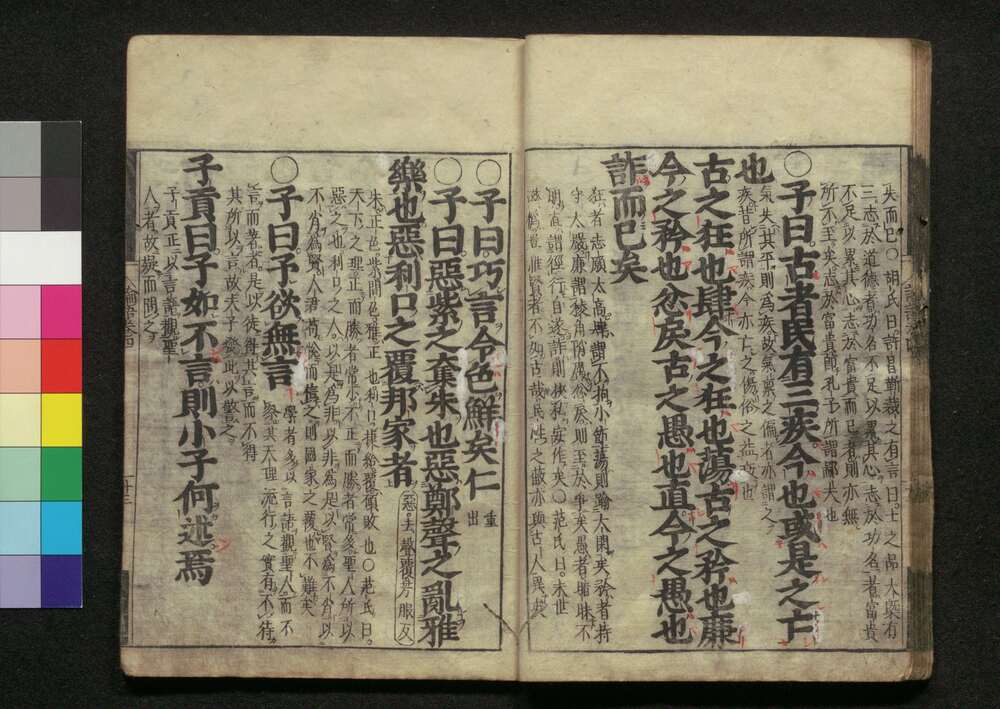 失而已○胡氏曰許昌靳裁之有言曰士之品大槩有
三志於道德者功名不足以累其心志於功名者富貴
不足以累其心志於富貴而已者則亦無
所不至矣志於富貴即孔子所謂鄙夫也
○子曰古者民有三疾今也或是之亡
也
氣失其平則為疾故氣稟之偏者亦謂之
疾昔所謂疾今亦亡之傷俗之益衰也
古之狂也肆今之狂也蕩古之矜也廉
今之矜也忿戾古之愚也直今之愚也
詐而已矣
狂者志願太高肆謂不拘小節蕩則踰大閑矣矜者持
守太嚴廉謂稜角陗厲忿戾則至於爭矣愚者暗昧不
明直謂徑行自遂詐則挾私妄作矣○范氏曰末世
滋偽豈惟賢者不如古哉民性之蔽亦與古人異矣
○子曰巧言令色鮮矣仁
重
出
○子曰惡紫之奪朱也惡鄭聲之亂雅
樂也惡利口之覆邦家者
惡去聲覆芳服反
朱正色紫間色雅正也利口捷給覆傾敗也○范氏曰
天下之理正而勝者常少不正而勝者常多聖人所以
惡之也利口之人以是為非以非為是以賢為不肖以
不肖為賢人君苟悅而信之則國家之覆也不難矣
○子曰予欲無言
學者多以言語觀聖人而不
察其天理流行之實有不待
言而著者是以徒得其言而不得
其所以言故夫子發此以警之
子貢曰子如不言則小子何述焉
子貢正以言語觀聖
人者故疑而問之